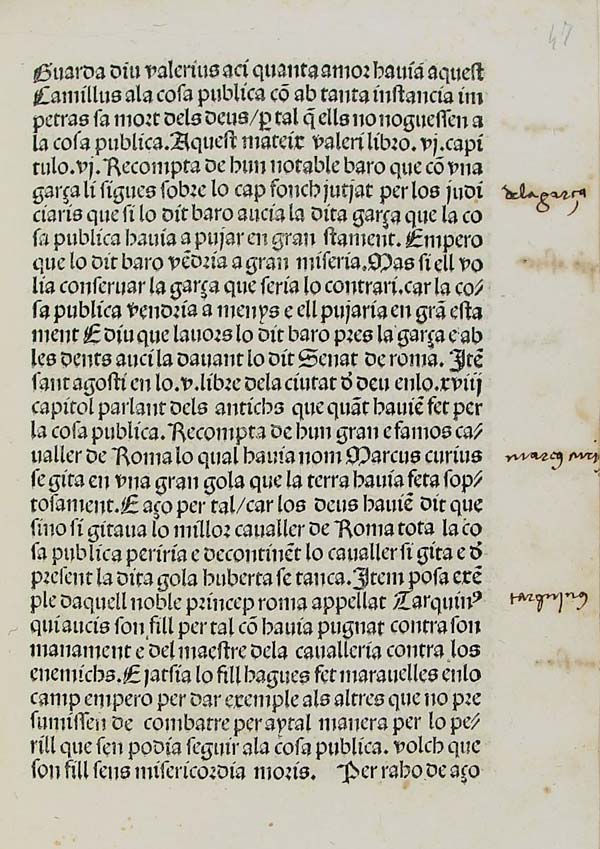 47
Guarda diu valerius aci quanta amor hauiã aquest
Camillus ala cosa publica cõ ab tanta instancia im
petras sa mort dels deus/ ꝑ tal q̃ ells no noguessen a
la cosa publica. Aquest mateix valeri libro. vj. capi
tulo. vj. Recompta de hun notable baro que cõ vna
garça li sigues sobre lo cap fonch jutjat per los judi
ciaris que si lo dit baro aucia la dita garça que la co
sa publica hauia a pujar en gran stament. Empero
que lo dit baro vẽdria a gran miseria. Mas si ell vo
lia conseruar la garça que seria lo contrari. car la co/
sa publica vendria a menys e ell pujaria en grã esta
ment E diu que lauors lo dit baro pres la garça e ab
les dents auci la dauant lo dit Senat de roma. Itẽ
sant agosti en lo. v. libre dela ciutat ð deu enlo. xviij
capitol parlant dels antichs que quãt hauiẽ fet per
la cosa publica. Recompta de hun gran e famos ca/
ualler de Roma lo qual hauia nom Marcus curius
se gita en vna gran gola que la terra hauia feta sop/
tosament. E aço per tal/ car los deus hauiẽ dit que
sino si gitaua lo millor caualler de Roma tota la co
sa publica periria e decontinẽt lo caualler si gita e ð
present la dita gola huberta se tanca. Item posa exẽ
ple daquell noble princep roma appellat Tarquinꝰ
qui aucis son fill per tal cõ hauia pugnat contra son
manament e del maestre dela caualleria contra los
enemichs. E jatsia lo fill hagues fet marauelles enlo
camp empero per dar exemple als altres que no pre
sumissen de combatre per aytal manera per lo pe/
rill que sen podia seguir ala cosa publica. volch que
son fill sens misericordia moris. Per raho de aço
dela garça
marcꝰ curi
tarquinꝰ